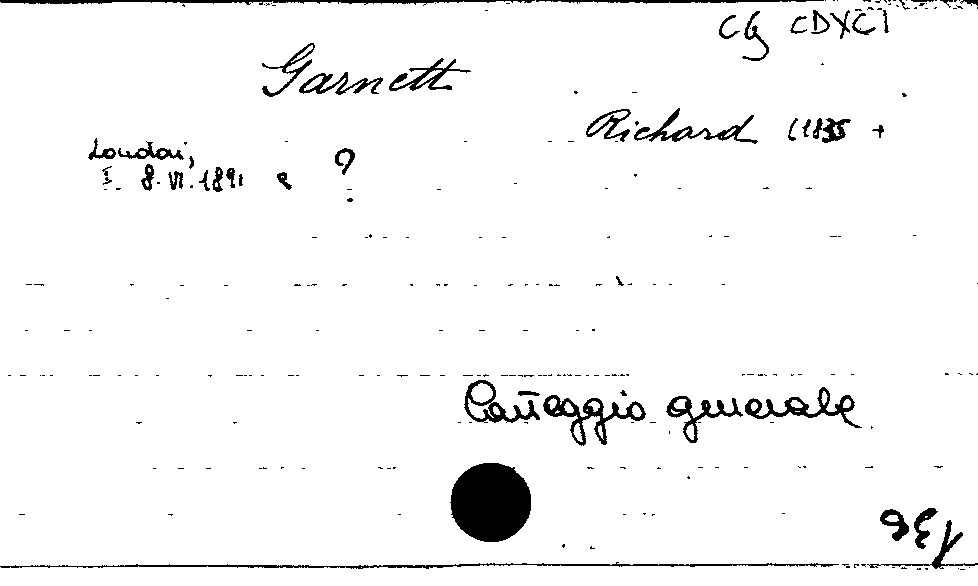 CG CDXCI
Garnett
Richard (1835 +
London,
I. 8. VI. 1891 e ?
Carteggio generale